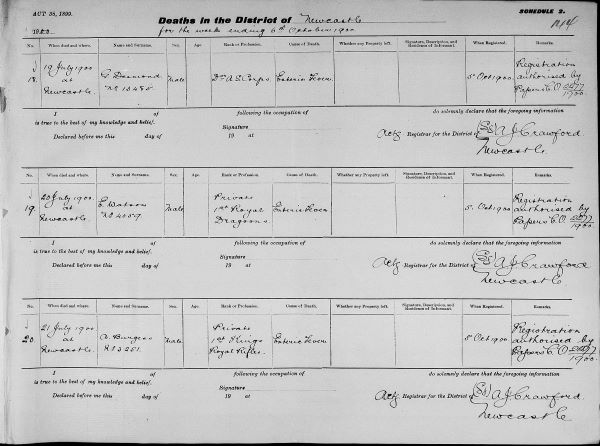 ACT 38, 1899.
SCHEDULE 2.
Deaths in the District of Newcastle
for the week ending 6th October 1900
No. When died and where. Name and Surname. Sex. Age. Rank or Profession. Cause of Death. Whether any Property left. Signature, Description, and Residence of Informant. When Registered. Remarks.
18. 19 July 1900 at Newcastle. G. Desmond Male Enteric Fever. 5 Oct 1900 Registration authorised by Papers C.O. 1900.
I of following the occupation of do solemnly declare that the foregoing information
is true to the best of my knowledge and belief. Signature
Declared before me this day of 19 at Actg Registrar for the District of A J Crawford
Newcastle
No. When died and where. Name and Surname. Sex. Age. Rank or Profession. Cause of Death. Whether any Property left. Signature, Description, and Residence of Informant. When Registered. Remarks.
19 20 July 1900. at Newcastle. E. Watson No 4059. Male Private 1st Royal Dragoons Enteric Fever 5 Oct 1900 Registration authorised by Papers C.O. 1900.
I of following the occupation of do solemnly declare that the foregoing information
is true to the best of my knowledge and belief. Signature
Declared before me this day of 19 at Actg Registrar for the District of A J Crawford
Newcastle
No. When died and where. Name and Surname. Sex. Age. Rank or Profession. Cause of Death. Whether any Property left. Signature, Description, and Residence of Informant. When Registered. Remarks.
20 21 July 1900 at Newcastle. A. Burgess Male Private 1st Kings Royal Rifles. Enteric Fever 5 Oct 1900 Registration authorised by Papers C.O. 1900.
I of following the occupation of do solemnly declare that the foregoing information
is true to the best of my knowledge and belief. Signature
Declared before me this day of 19 at Actg Registrar for the District of A J Crawford
Newcastle